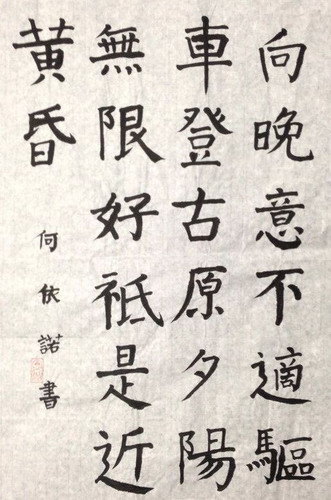 向晚意不適驅
車登古原夕陽
無限好祗是近
黃昏
何依諾書